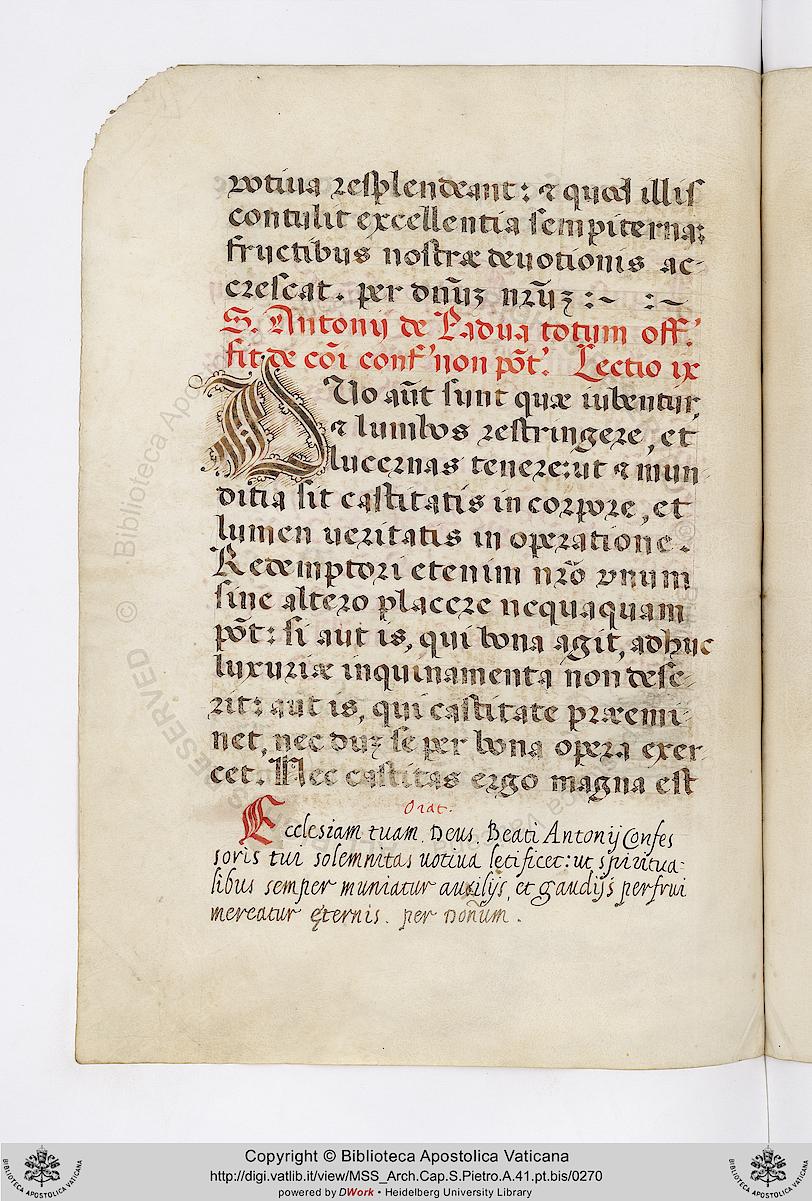 votiua resplendeant: & quod illis
contulit excellentia sempiterna:
fructibus nostræ deuotionis ac-
crescat. per dñuȝ nrũȝ :~ :~
S. Antonij de Padua totum off.'
fit de cõi conf' non põt.' Lectio ix
DVo aũt sunt quæ iubentur,
& lumbos restringere, et
lucernas tenere: ut & mun-
ditia sit castitatis in corpore, et
lumen ueritatis in operatione.
Redemptori etenim nrõ vnum
sine altero placere nequaquam
põt: si aut is, qui bona agit, adhuc
luxuriæ inquinamenta non dese-
rit: aut is, qui castitate præemi-
net, nec duȝ se per bona opera exer-
cet. Nec castitas ergo magna est
Orat.
Ecclesiam tuam. Deus. Beati Antonij Confes
soris tui solemnitas uotiua letificet: ut spiritua-
libus semper muniatur auxilijs, et gaudijs perfrui
mereatur ęternis. per Doñum.
© Biblioteca Apostolica Vaticana
RESERVED
Copyright © Biblioteca Apostolica Vaticana
http://digi.vatlib.it/view/MSS_Arch.Cap.S.Pietro.A.41.pt.bis/0270
powered by DWork • Heidelberg University Library
BIBLIOTECA APOSTOLICA VATICANA
BIBLIOTECA APOSTOLICA VATICANA